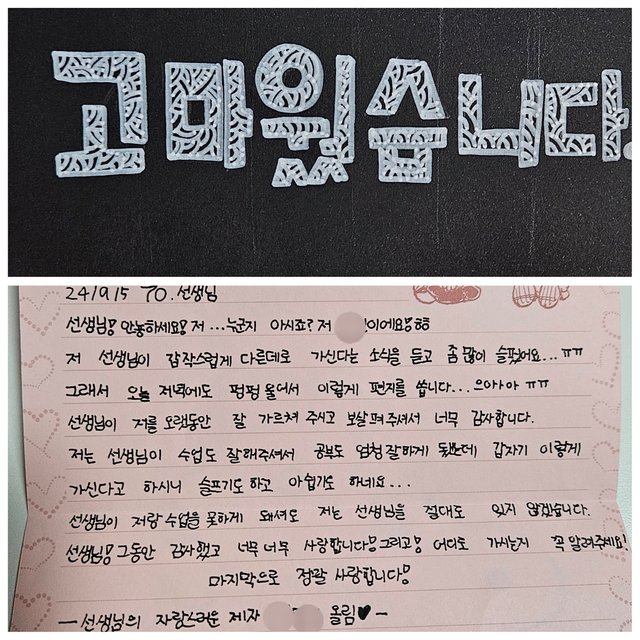 고마웠습니다.
24/9/5 TO. 선생님
선생님! 안농하세요! 저...누군지 아시죠? 저 이에요! ㅎㅎ
저 선생님이 갑작스럽게 다른데로 가신다는 소식을 듣고 좀 많이 슬펐어요...ㅠㅠ
그래서 오늘 저녁에도 펑펑 울어서 이렇게 편지를 씁니다...으아아아 ㅠㅠ
선생님이 저를 오랫동안 잘 가르쳐 주시고 보살펴 주셔서 너무 감사합니다.
저는 선생님이 수업도 잘해주셔서 공부도 엄청 잘하게 됐는데 갑자기 이렇게
가신다고 하시니 슬프기도 하고 아쉽기도 하네요...
선생님이 저랑 수업을 못하게 돼셔도 저는 선생님을 절대로 잊지 않겠습니다.
선생님! 그동안 감사했고 너무 너무 사랑합니다! 그리고! 어디로 가시는지 꼭 알려주세요!
마지막으로 정말 사랑합니다!
- 선생님의 자랑스러운 제자 올림♥ -